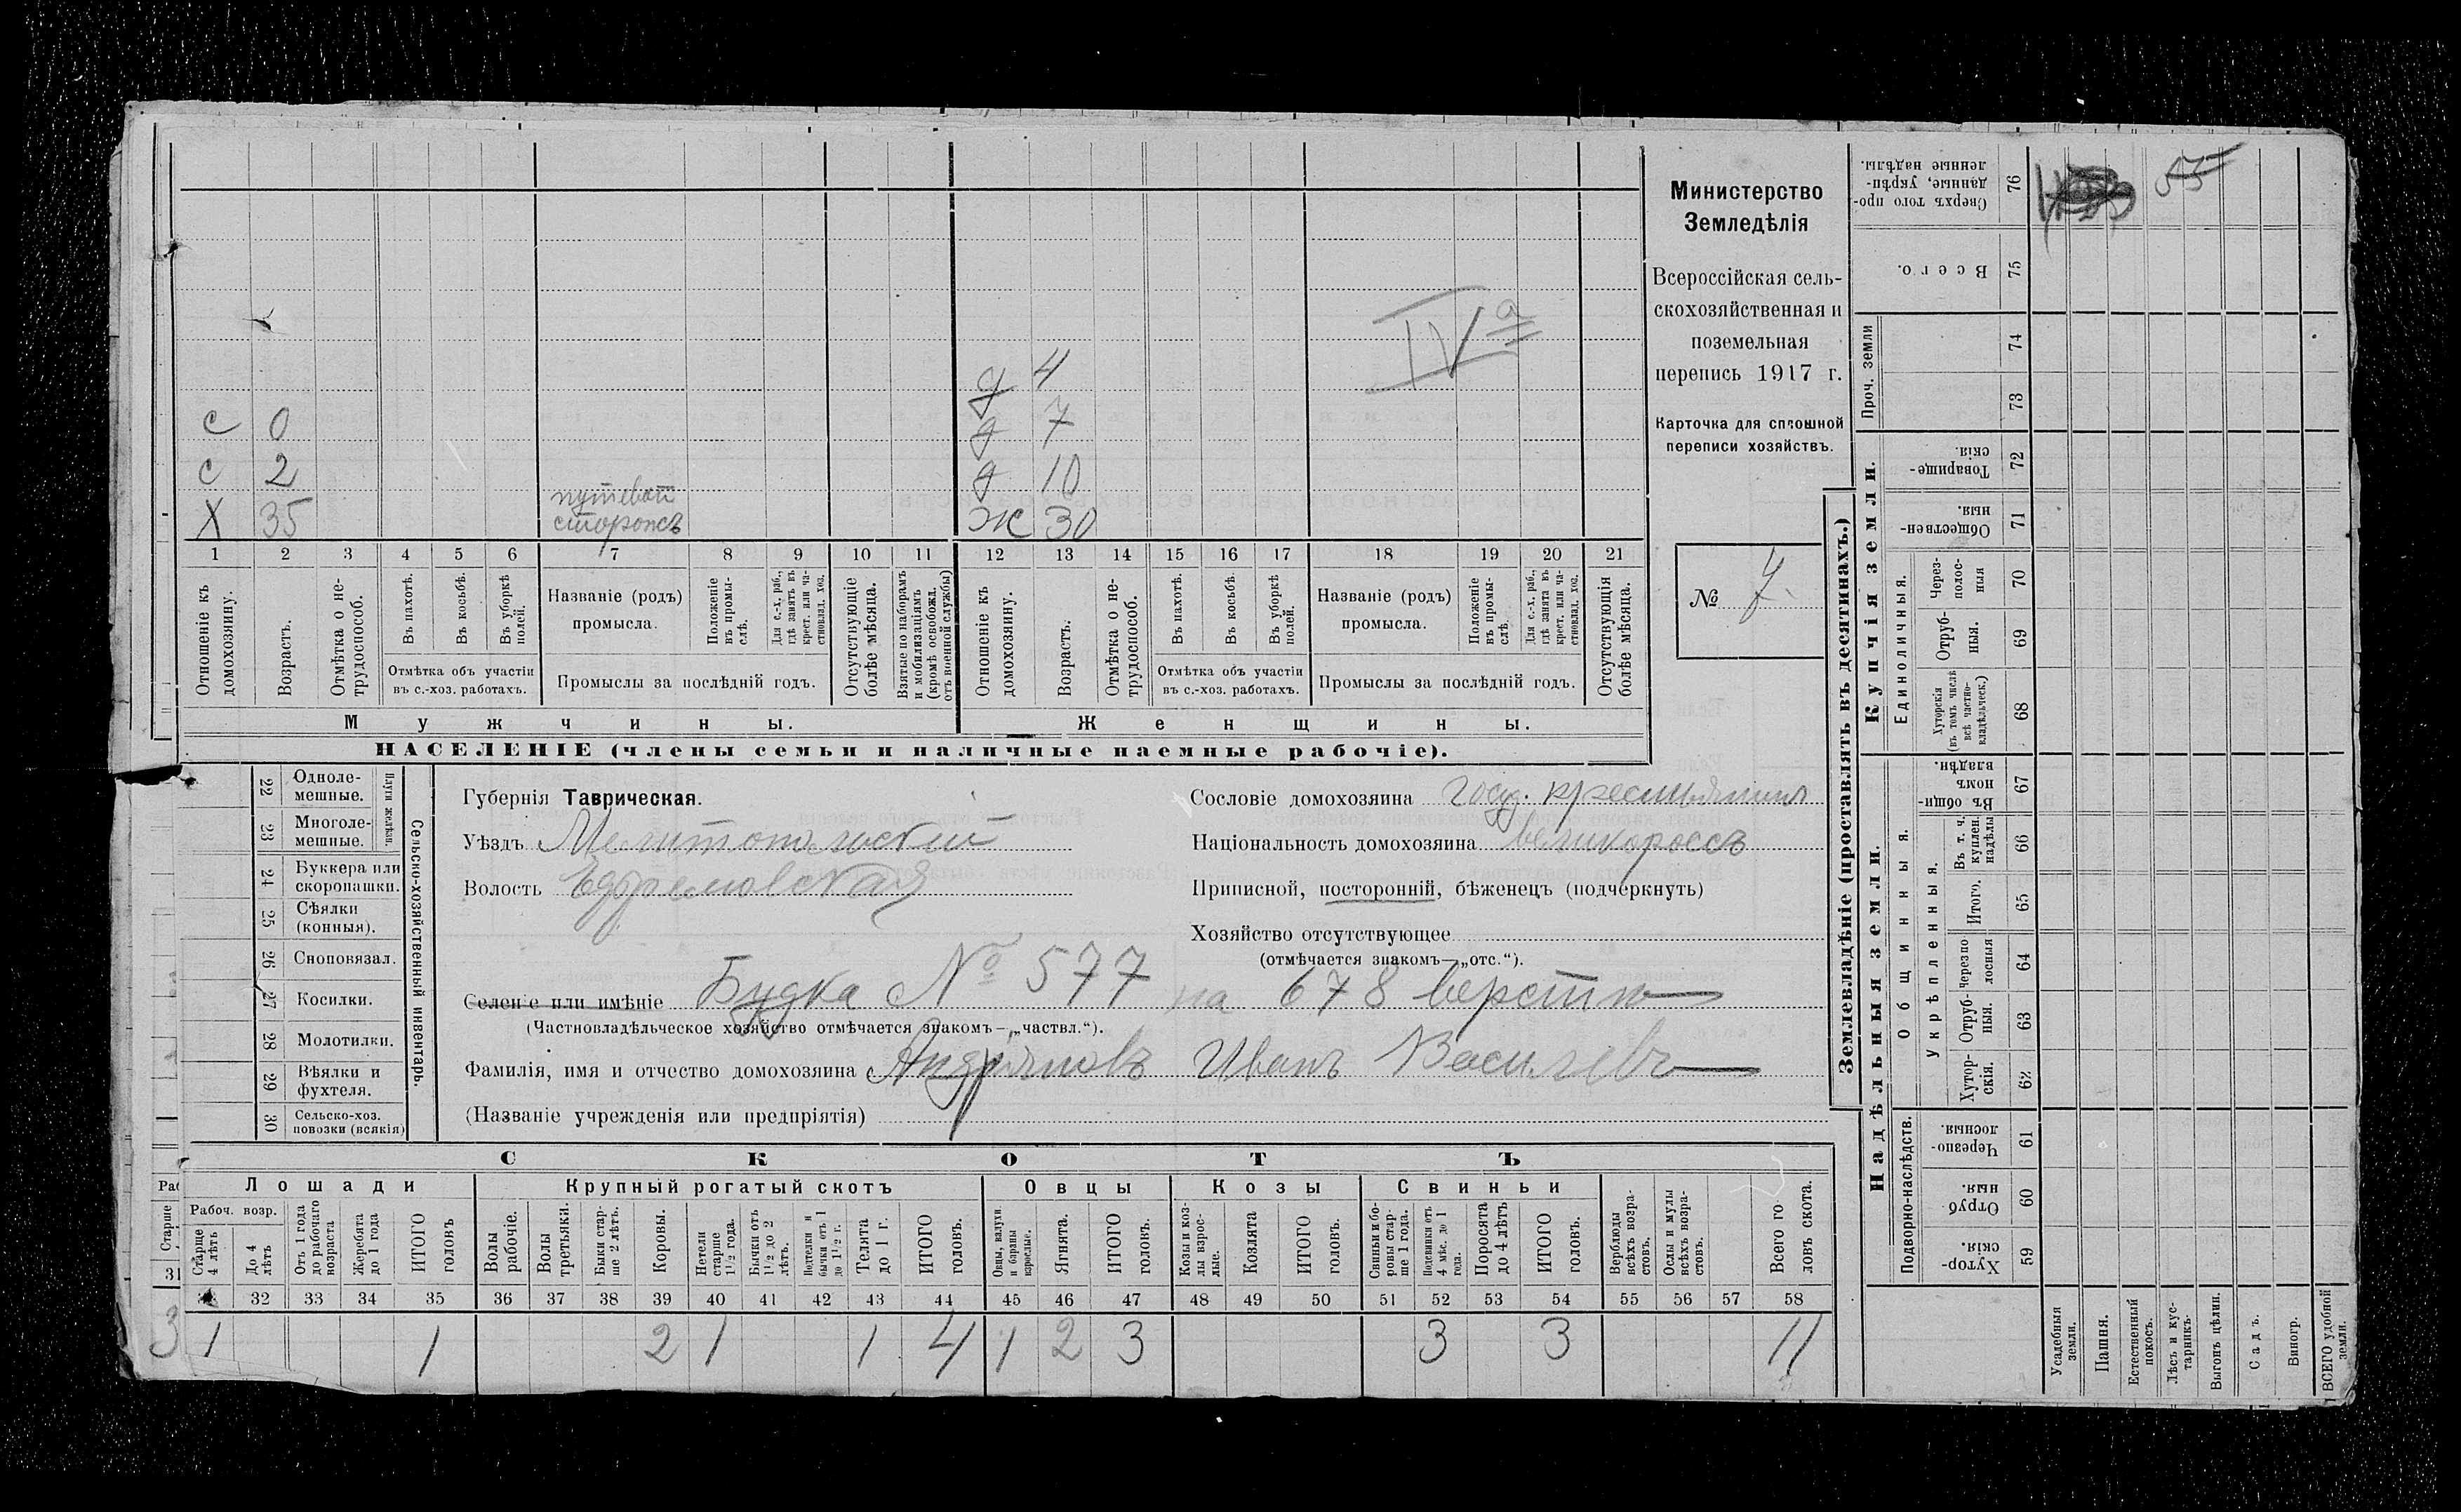 Министерство
Земледѣлія
Всероссійская сель-
скохозяйственная и
поземельная
перепись 1917 г.
Карточка для сплошной
переписи хозяйствъ.
№ 7.
IVа
д 4
с 0 д 7
с 2 д 10
путевой
Х 35 сторожъ Ж 30
1 2 3 4 5 6 7 8 9 10 11 12 13 14 15 16 17 18 19 20 21
Отношеніе къ домохозяину.
Возрастъ.
Отмѣтка о не-трудоспособ.
Въ пахотѣ.
Въ косьбѣ.
Въ уборкѣ полей.
Отмѣтка объ участіи
въ с.-хоз. работахъ.
Названіе (родъ)
промысла.
Положеніе въ промы-слѣ.
Для с.-х. раб., гдѣ занятъ въ крест. или ча-стновлад. хоз.
Промыслы за послѣдній годъ.
Отсутствующіе болѣе мѣсяца.
Взятые по наборамъ и мобилизаціямъ (кромѣ освобожд. отъ военной службы)
Отношеніе къ домохозяину.
Возрастъ.
Отмѣтка о не-трудоспособ.
Въ пахотѣ.
Въ косьбѣ.
Въ уборкѣ полей.
Отмѣтка объ участіи
въ с.-хоз. работахъ.
Названіе (родъ)
промысла.
Положеніе въ промы-слѣ.
Для с.-х. раб., гдѣ занята въ крест. или ча-стновлад. хоз.
Промыслы за послѣдній годъ.
Отсутствующія болѣе мѣсяца.
Мужчины. Женщины.
НАСЕЛЕНІЕ (члены семьи и наличные наемные рабочіе).
22 Однолемешные.
23 Многолемешные.
Плуги желѣзн.
24 Буккера или скоропашки.
25 Сѣялки (конныя).
26 Сноповязал.
27 Косилки.
28 Молотилки.
29 Вѣялки и фухтеля.
30 Сельско-хоз. повозки (всякія)
Сельско-хозяйственный инвентарь.
Губернія Таврическая.
Уѣздъ Мелитопольский
Волость Ефремовская
Сословіе домохозяина Госуд. крестьянинъ
Національность домохозяина великороссъ
Приписной, посторонній, бѣженецъ (подчеркнуть)
Хозяйство отсутствующее
(отмѣчается знакомъ—„отс.“).
Селеніе или имѣніе Будка № 577 на 678 верстѣ
(Частновладѣльческое хозяйство отмѣчается знакомъ—„частвл.“).
Фамилія, имя и отчество домохозяина Андріяновъ Иванъ Василевъ
(Названіе учрежденія или предпріятія)
СКОТЪ
Лошади Крупный рогатый скотъ Овцы Козы Свиньи
Рабоч. возр.
Старше 4 лѣтъ
До 4 лѣтъ
Отъ 1 года до рабочаго возраста
Жеребята до 1 года
ИТОГО головъ
Волы рабочіе.
Волы третьяки.
Быки стар-ше 2 лѣтъ.
Коровы.
Нетели старше 1½ года.
Бычки отъ 1½ до 2 лѣтъ.
Подтелки и бычки отъ 1 до 1½ г.
Телята до 1 г.
ИТОГО головъ.
Овцы, валухи и бараны взрослые.
Ягнята.
ИТОГО головъ.
Козы и коз-лы взрос-лые.
Козлята
ИТОГО головъ.
Свиньи и бо-ровы стар-ше 1 года.
Подсвинки отъ 4 мѣс. до 1 года.
Поросята до 4 лѣтъ
ИТОГО головъ.
Верблюды всѣхъ возра-стовъ.
Ослы и мулы всѣхъ возра-стовъ.
Всего го-ловъ скота.
32 33 34 35 36 37 38 39 40 41 42 43 44 45 46 47 48 49 50 51 52 53 54 55 56 57 58
3 1 1 2 1 1 4 1 2 3 3 3 11
Раб
Старше
31
Землевладѣніе (проставлять въ десятинахъ.)
Надѣльныя земли. Купчія земли. Проч. земли
Подворно-наслѣдств. Общинныя. Единоличныя.
Укрѣпленныя.
59 Хутор-скія.
60 Отруб-ныя.
61 Черезпо-лосныя.
62 Хутор-скія.
63 Отруб-ныя.
64 Черезпо-лосныя
65 Итого.
66 Въ т. ч. куплен. надѣлы
67 Въ общи-номъ владѣн.
68 Хуторскія (въ томъ числѣ всѣ частно-владѣльческ.)
69 Отруб-ныя.
70 Через-полос-ныя
71 Обществен-ныя.
72 Товарище-скія.
73
74
75 Всего.
76 Сверхъ того про-данные, укрѣп-ленные надѣлы.
55
Усадебныя земли.
Пашня.
Естественный покосъ.
Лѣсъ и кус-тарникъ.
Выгонъ цѣлин.
Садъ.
Виногр.
ВСЕГО удобной земли.